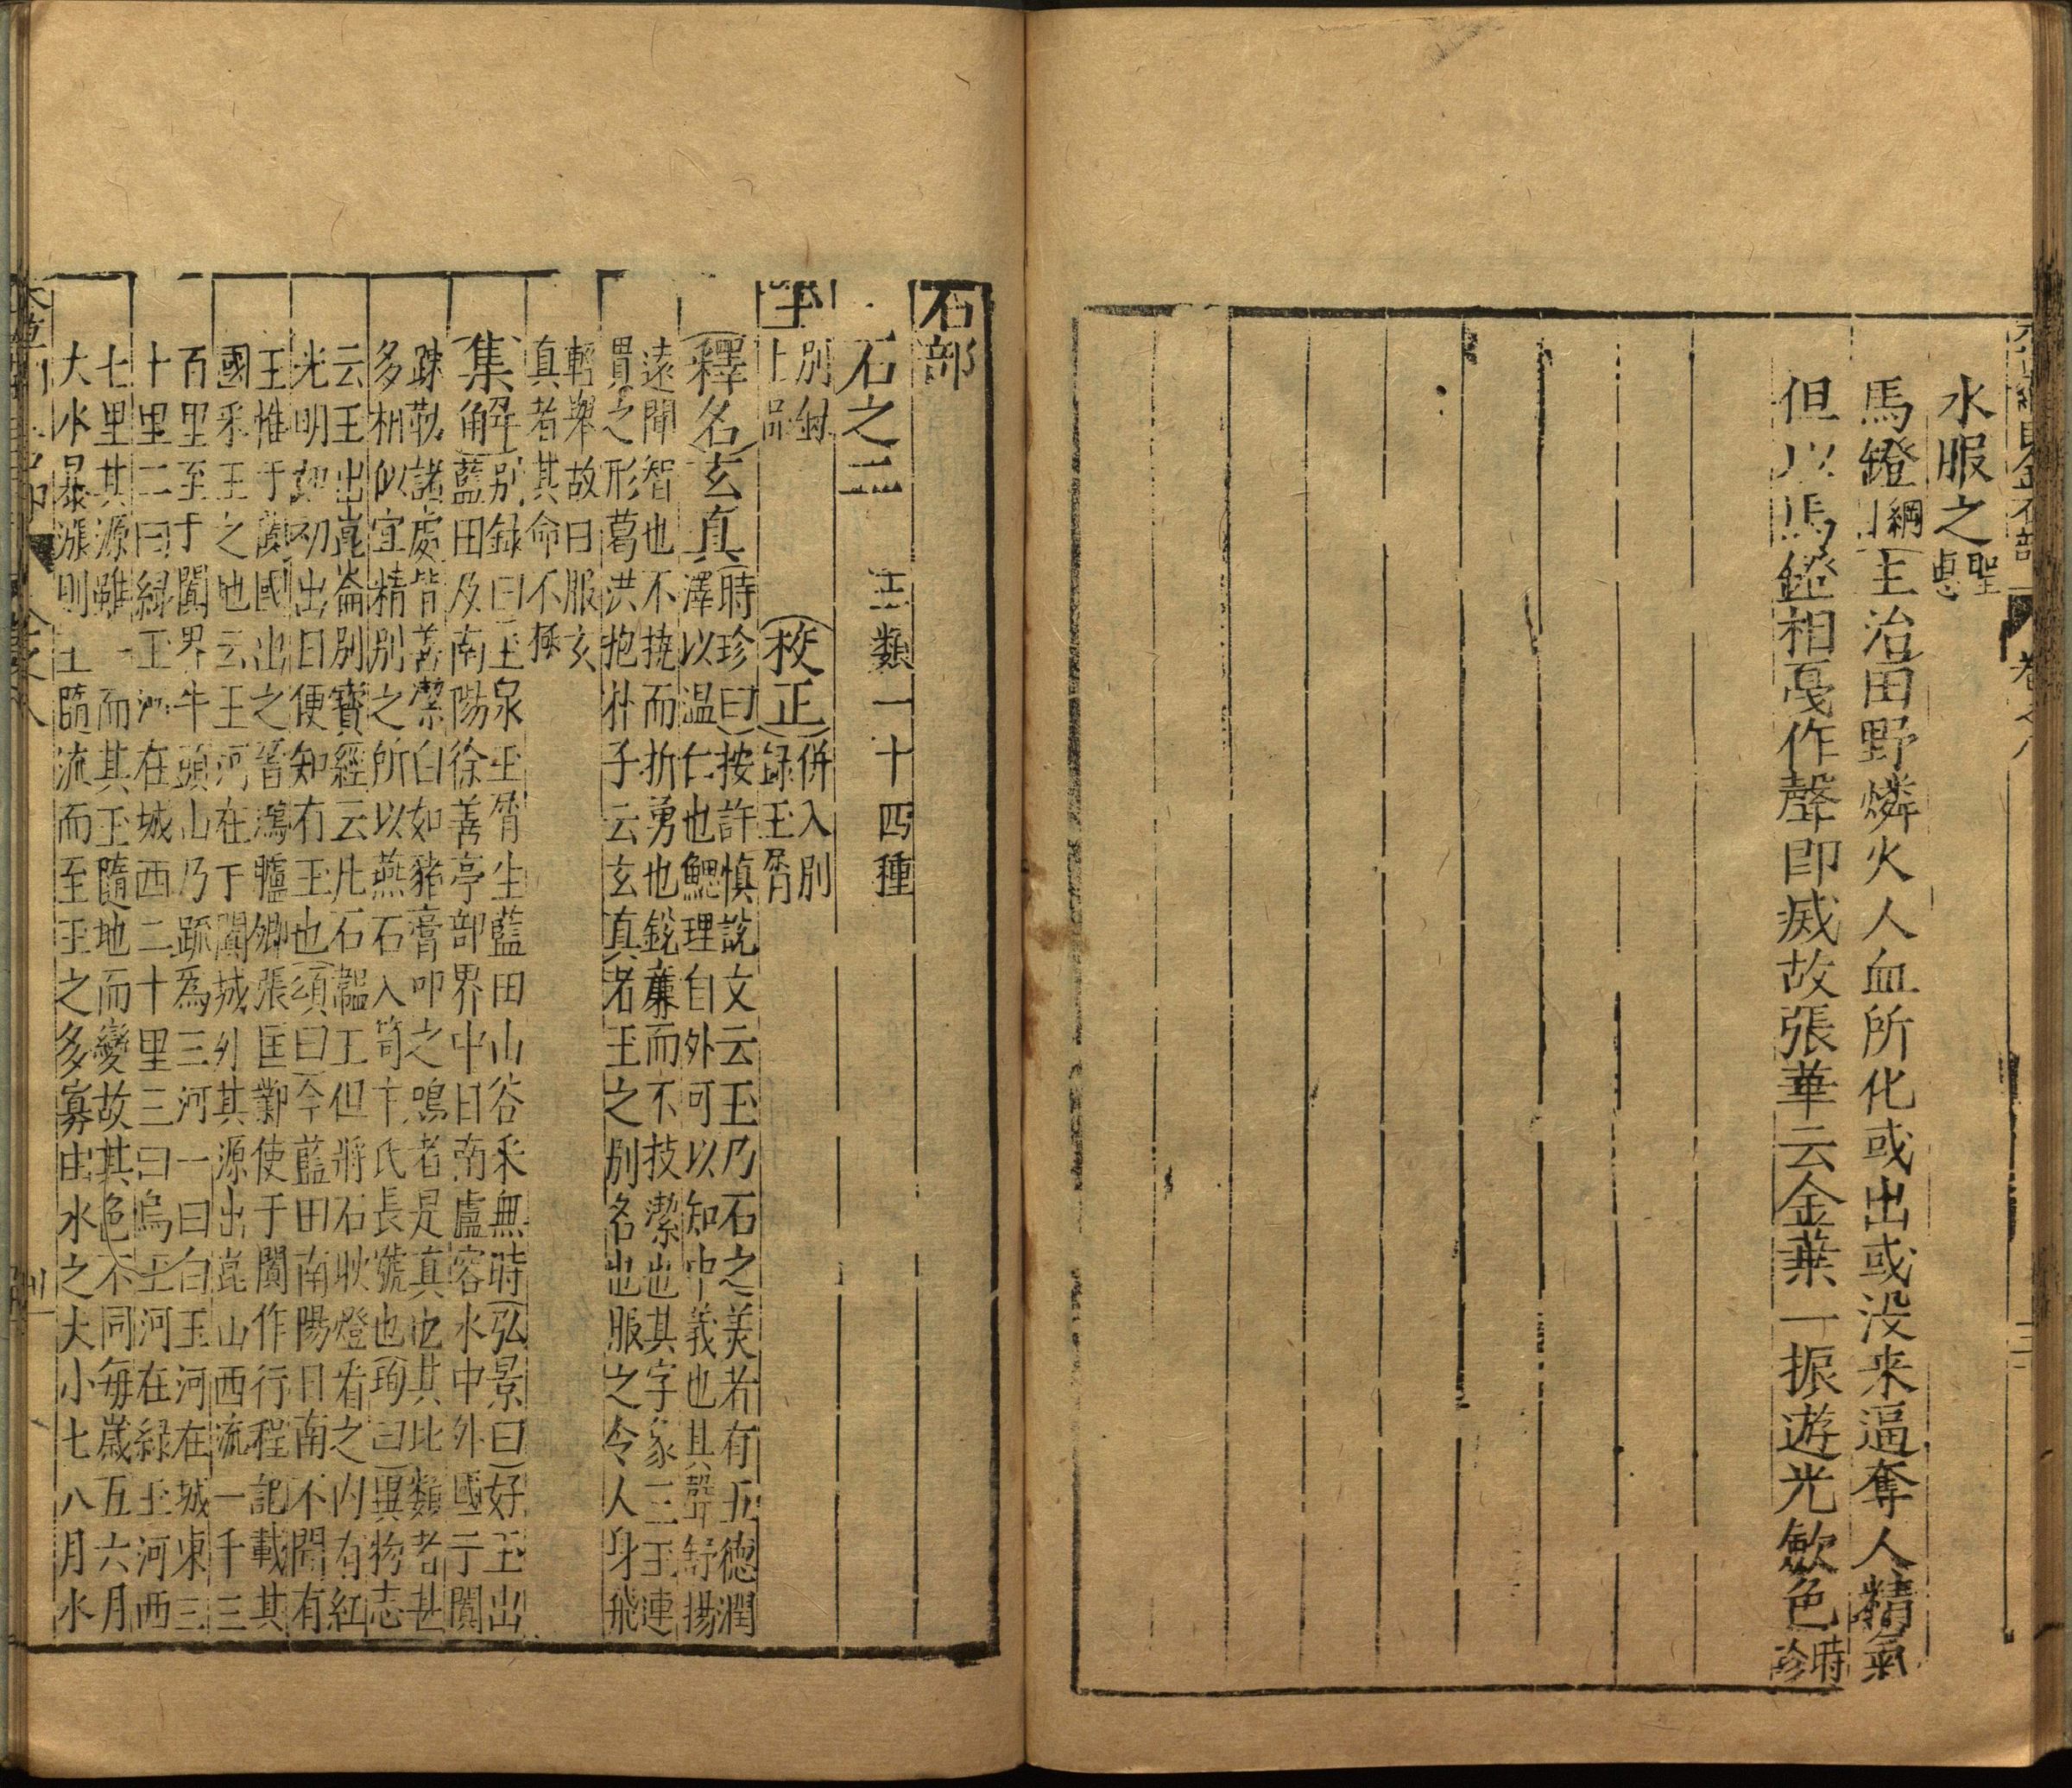 水服之聖惠
馬鐙綱目主治田野燐火人血所化或出或没来逼奪人精氣
但以馬鐙相戞作聲即滅故張華云金葉一振遊光斂色時珍
石部
石之二 玉類一十四種
玉別録上品 校正併入別録玉屑
釋名玄真時珍曰按許慎說文云玉乃石之美者有五德潤
澤以温仁也䚡理自外可以知中義也其聲舒揚
遠聞智也不撓而折勇也銳廉而不技潔也其字象三玉連
貫之形葛洪抱朴子云玄真者玉之別名也服之令人身飛
輕舉故曰服玄
真者其命不極
集解別録曰玉泉玉屑生藍田山谷采無時弘景曰好玉出
藍田及南陽徐善亭部界中日南盧容水中外國于闐
疎勒諸處皆善潔白如豬膏叩之鳴者是真也其比類者甚
多相似宜精別之所以燕石入笥卞氏長號也珣曰異物志
云玉出崑崙別寶經云凡石韞玉但將石映燈看之内有紅
光明如初出日便知有玉也頌曰今藍田南陽日南不聞有
玉惟于闐國出之晋鴻臚卿張匡鄴使于闐作行程記載其
國采玉之地云玉河在于闐城外其源出崑山西流一千三
百里至于闐界牛頭山乃疏為三河一曰白玉河在城東三
十里二曰緑玉河在城西二十里三曰烏玉河在緑玉河西
七里其源雖一而其玉隨地而變故其色不同每歲五六月
大水暴漲則玉隨流而至玉之多寡由水之大小七八月水